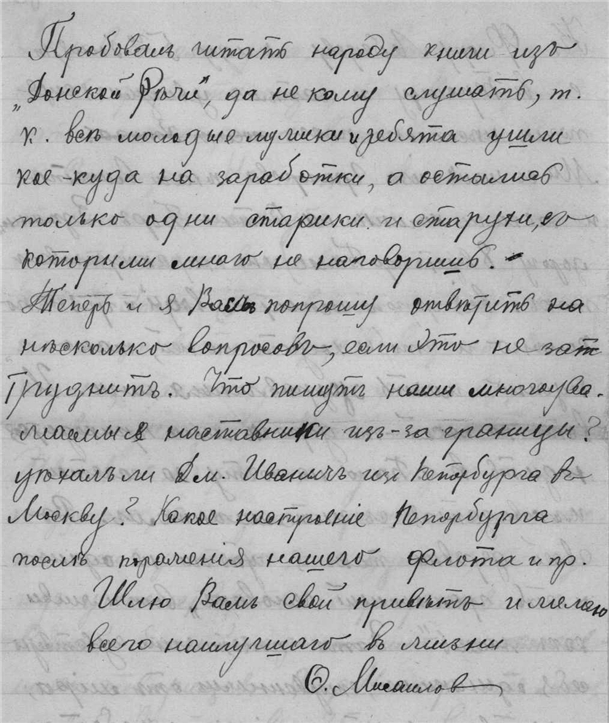 Пробовалъ читать народу книги изъ
„Донской Рѣчи“, да некому слушать, т.
к. всѣ молодые мужики и ребята ушли
кое-куда на заработки, а остались
только одни старики и старухи, съ
которыми много не наговоришь. -
Теперь и я Васъ попрошу отвѣтить на
нѣсколько вопросовъ, если это не зат
труднитъ. Что пишутъ наши многоува-
жаемыя наставники изъ-за границы?
уѣхалъ ли Дм. Иваничъ изъ Петербурга въ
Москву? Какое настроеніе Петербурга
послѣ пораженія нашего флота и пр.
Шлю Вамъ свой привѣтъ и желаю
всего наилучшаго въ жизни